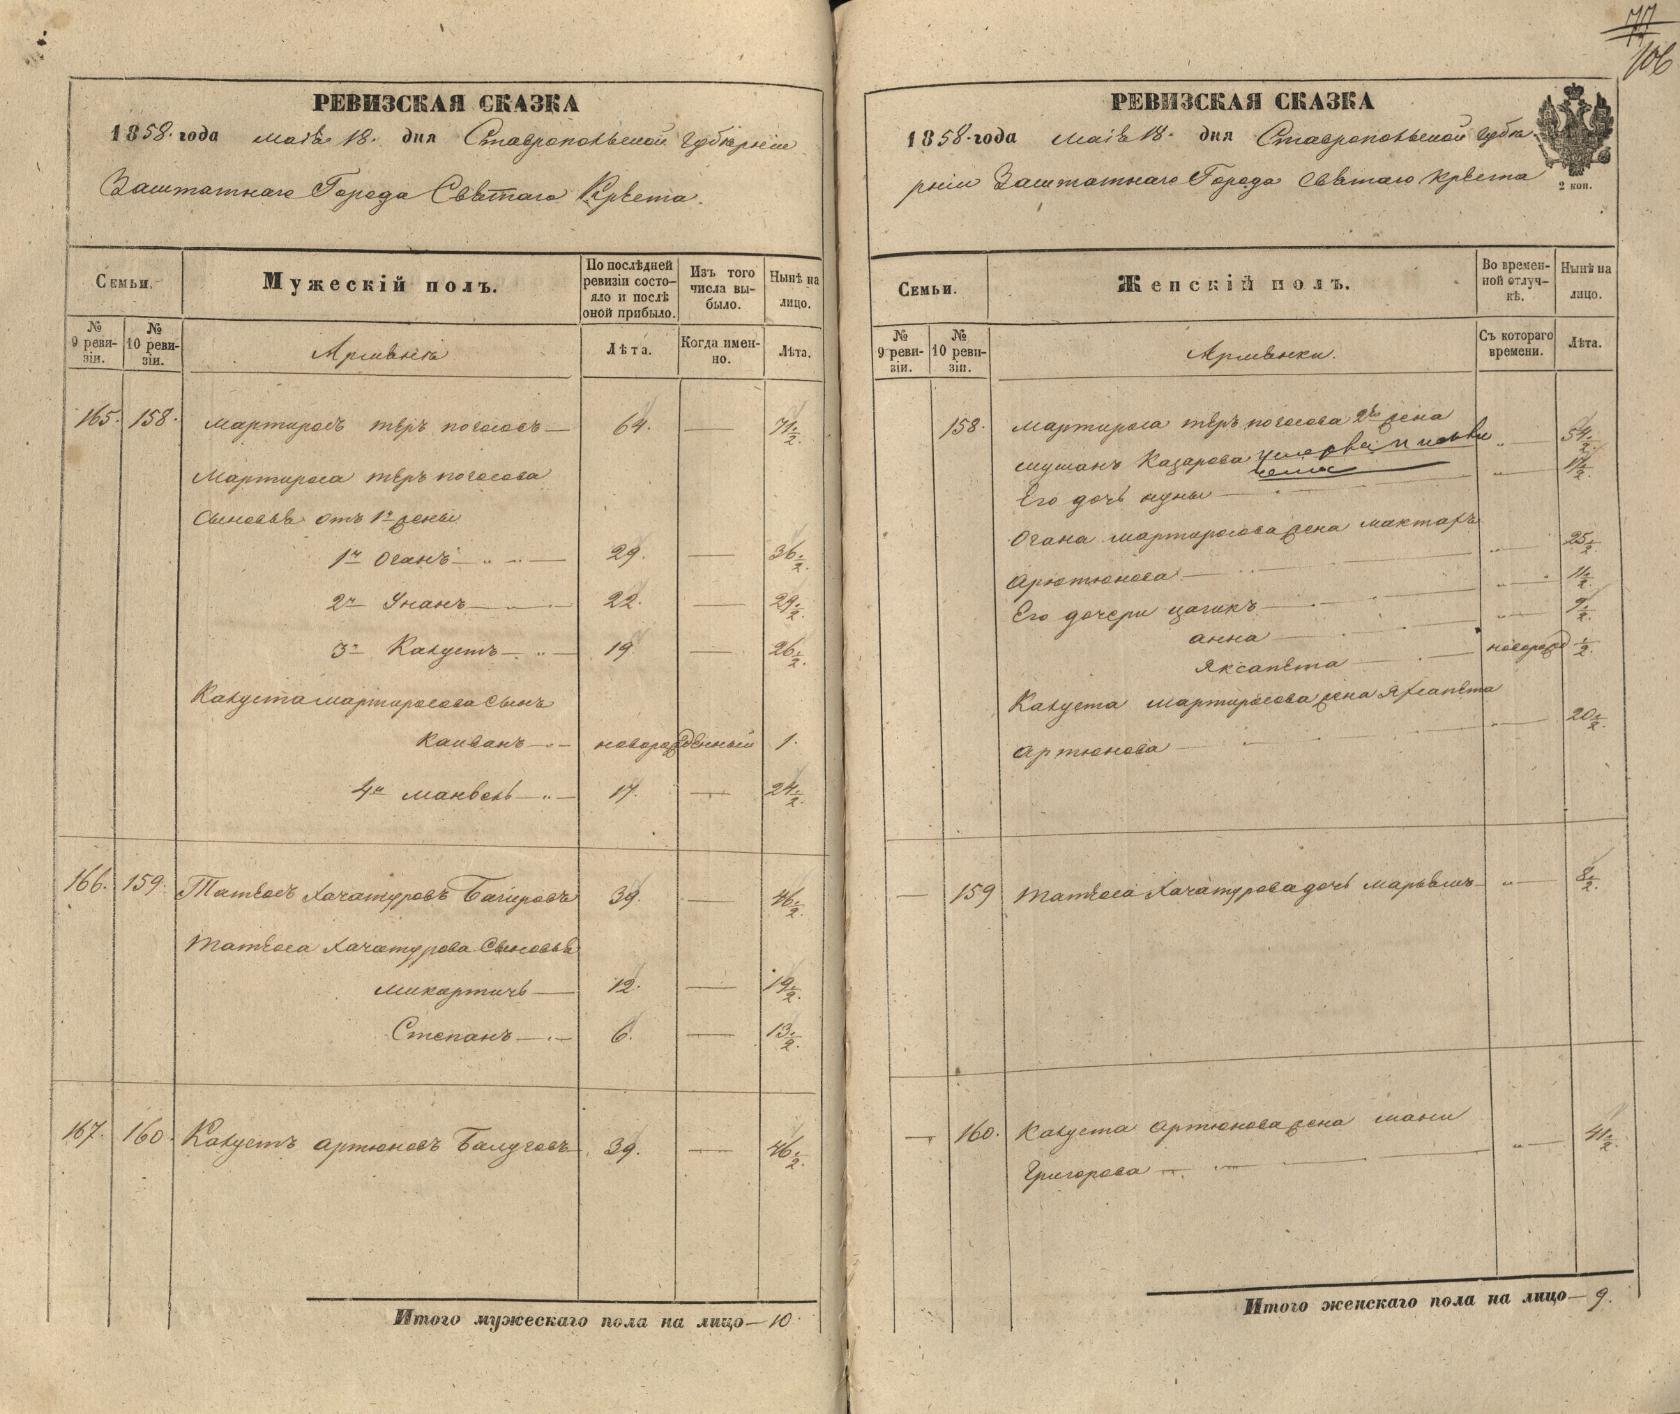 РЕВИЗСКАЯ СКАЗКА
1858. года маія 18. дня Ставропольской Губерніи
Заштатнаго Города Святаго Креста.
Семьи.
Мужескій полъ.
По послѣдней ревизіи состояло и послѣ оной прибыло.
Изъ того числа выбыло.
Нынѣ на лицо.
№ 9 ревизіи.
№ 10 ревизіи.
Армяне
Лѣта.
Когда именно.
Лѣта.
165. 158. Мартиросъ теръ погосовъ — 64. — 71 1/2.
Мартироса теръ погосова
Сыновья отъ 1й жены
1й Оганъ — 29. — 36 1/2.
2й Унанъ — 22. — 29 1/2.
3й Калустъ — 19. — 26 1/2.
Калуста мартиросова сынъ
новорожденный 1.
4й манвелъ — 17. — 24 1/2.
166. 159. Татеосъ Хачатуровъ Багировъ 39. — 46 1/2.
Татеоса Хачатурова Сыновья
Микартичь — 12. — 19 1/2.
Степанъ — 6. — 13 1/2.
167. 160. Калустъ Артюновъ 39. — 46 1/2.
Итого мужескаго пола на лицо — 10.
77
106
РЕВИЗСКАЯ СКАЗКА
1858. года маія 18. дня Ставропольской Губе-
рніи Заштатнаго Города Святаго Креста
2 коп.
Семьи.
Женскій полъ.
Во временной отлучкѣ.
Нынѣ на лицо.
№ 9 ревизіи.
№ 10 ревизіи.
Армянки.
Съ котораго времени.
Лѣта.
158. Мартироса теръ погосова 2я жена
Мушанъ Казарова „ — 54 1/2.
Его дочь — „ — 11 1/2.
Огана мартиросова жена мактаръ
Арютюнова — „ — 25 1/2.
Его дочери цагикъ — „ — 11 1/2.
анна — „ — 9 1/2.
Яксапета — новорожд 1/2.
Калуста мартиросова жена
Артюнова — „ — 20 1/2.
— 159 Татеоса Хачатурова дочь марьямъ — „ — 8 1/2.
— 160. Калуста Артюнова жена мани
Григорова — „ — 41 1/2.
Итого женскаго пола на лицо — 9.